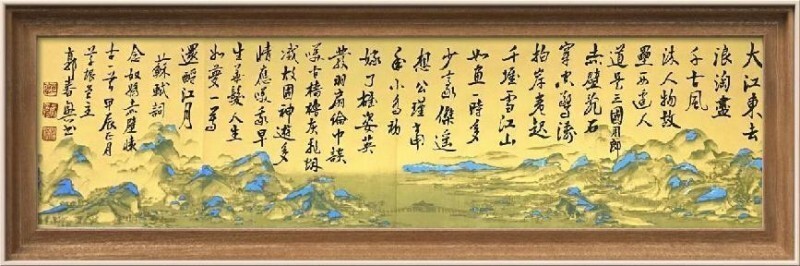 大江東去
浪淘盡
千古風
流人物故
壘西邊人
道是三國周郎
赤壁亂石
穿空驚濤
拍岸卷起
千堆雪江山
如畫一時多
少豪傑遙
想公瑾當
年小喬初
嫁了雄姿英
發羽扇綸巾談
笑檣櫓灰飛烟
滅故國神遊多
情應笑我早
生華髮人生
如夢一尊
還酹江月
蘇軾詞
念奴嬌赤壁懷
古一首甲辰正月
主
郭春書